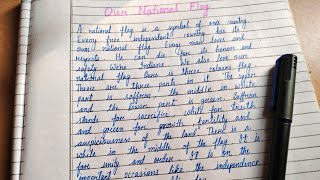 Our National Flag
A national flag is a symbol of one country.
Every free independent country has its
own national flag. Every man loves and
respects. He can die for its honour and
safety. We're Indians. We also love our
national flag. Ours is three coloured flag.
There are three parts in it. The upper
part is saffron the middle in white
and the lower part is green. Saffron
stands for sacrifice, white for truth
and green for growth, fertility and
auspiciousness of the land. There is a
while in the middle of the flag. It is
for unity and order. It is on the
important occasions like the independence